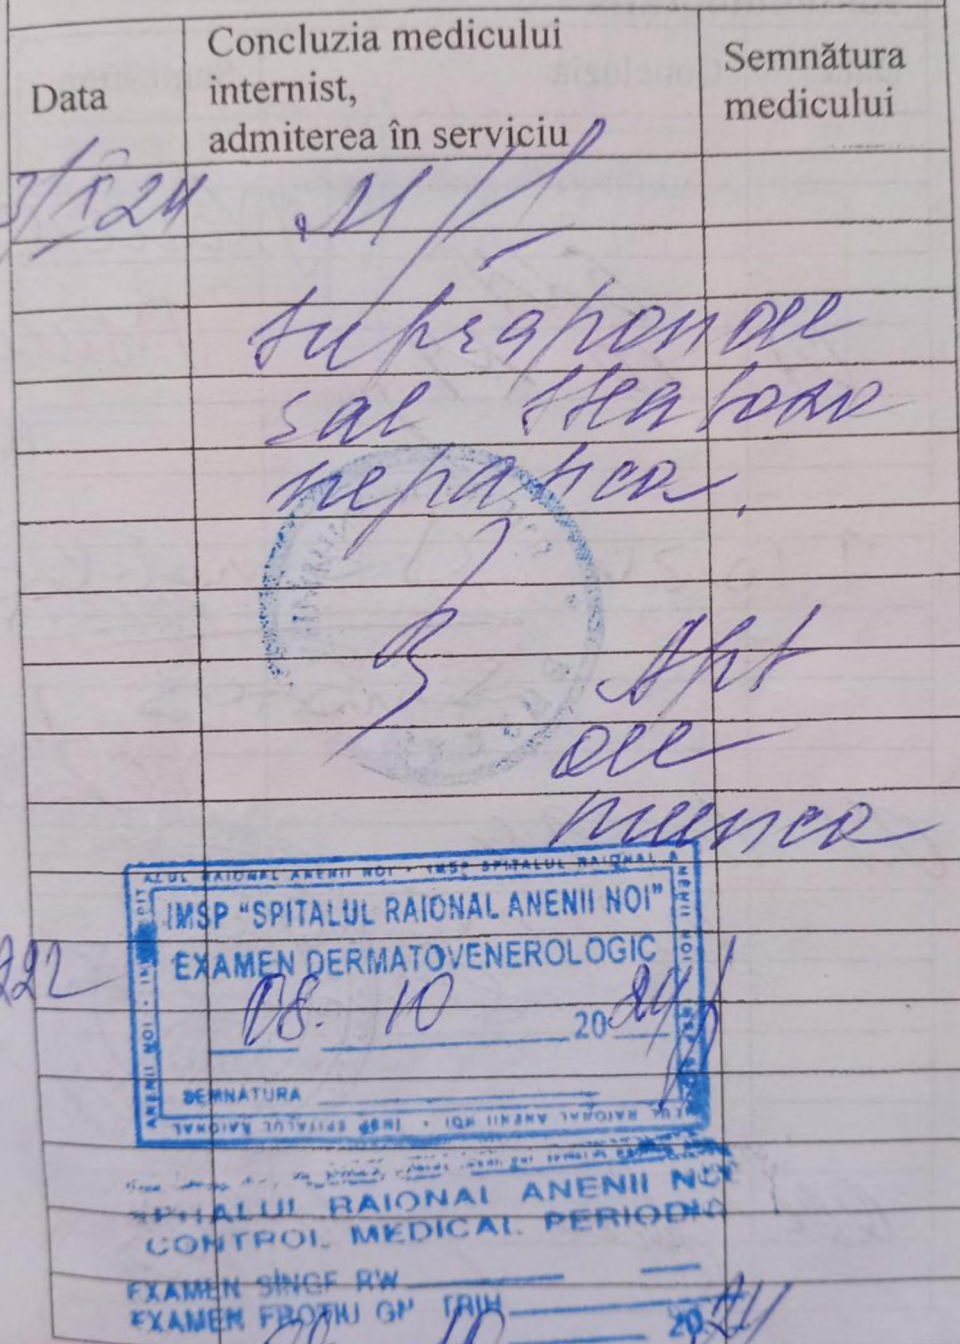 Data
Concluzia medicului
internist,
admiterea în serviciu
Semnătura
medicului
suprapon dee
sal steatoza
hepatica,
Apt
de
munca
IMSP "SPITALUL RAIONAL ANENII NOI"
EXAMEN DERMATOVENEROLOGIC
08. 10 2024
SEMNATURA
SPITALUL RAIONAL ANENII NOI
CONTROL MEDICAL PERIODIC
EXAMEN SÎNGE RW
EXAMEN FROTIU GN TRIH
20 24